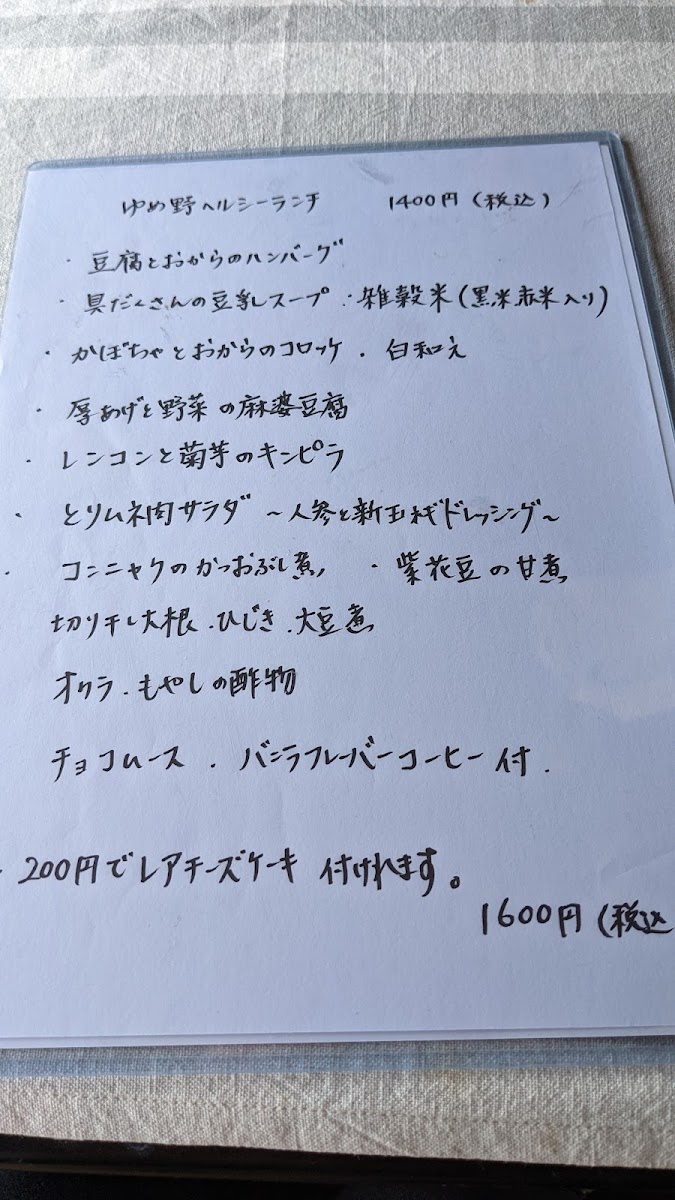 ゆめ野ヘルシーランチ 1400円(税込)
・豆腐とおからのハンバーグ
・具だくさんの豆乳スープ ・雑穀米(黒米赤米入り)
・かぼちゃとおからのコロッケ ・白和え
・厚あげと野菜の麻婆豆腐
・レンコンと菊芋のキンピラ
・とりムネ肉サラダ ~人参と新玉ねぎドレッシング~
・コンニャクのかつおぶし煮 ・紫花豆の甘煮
切り干し大根・ひじき・大豆煮
オクラ・もやしの酢物
チョコムース・バニラフレーバーコーヒー付.
・200円でレアチーズケーキ付けれます。
1600円(税込